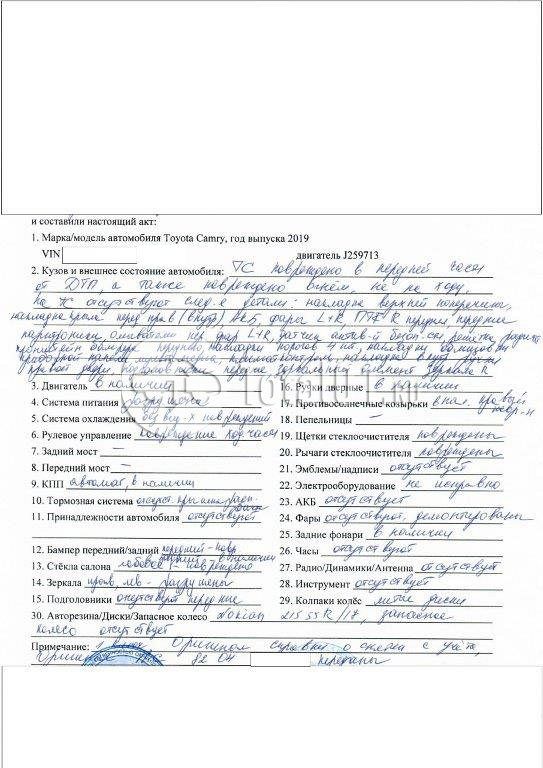 и составили настоящий акт:
1. Марка/модель автомобиля Toyota Camry, год выпуска 2019
VIN двигатель J259713
2. Кузов и внешнее состояние автомобиля: ТС повреждено в передней части
от ДТП, а также повреждено огнём, не на ходу.
На ТС отсутствуют след-е детали: накладка верхней поперечины,
накладка крыла перед прав (внутр), АКБ, фары L+R ПТФ R передняя, передние
парктроники, омыватели фар L+R, датчик решетка
бампера накладки порогов
приборной панели, климатконтроль, накладка
правой двери, передние зеркальный элемент зеркала R
3. Двигатель в наличии
4. Система питания разрушена
5. Система охлаждения повреждений
6. Рулевое управление повреждение
7. Задний мост —
8. Передний мост —
9. КПП автомат, в наличии
10. Тормозная система отсутст.
11. Принадлежности автомобиля отсутствуют
12. Бампер передний/задний передний - повр
задний в наличии
13. Стёкла салона лобовое - повреждено
14. Зеркала прав, лев - разрушены
15. Подголовники отсутствуют передние
16. Ручки дверные в наличии
17. Противосолнечные козырьки в нал. правый
повр-н
18. Пепельницы —
19. Щетки стеклоочистителя повреждены
20. Рычаги стеклоочистителя повреждены
21. Эмблемы/надписи отсутствует
22. Электрооборудование не исправно
23. АКБ отсутствует
24. Фары отсутствуют, демонтированы
25. Задние фонари в наличии
26. Часы отсутствуют
27. Радио/Динамики/Антенна отсутствует
28. Инструмент отсутствует
29. Колпаки колёс литые диски
30. Авторезина/Диски/Запасное колесо Nokian 215 55 R/17, запасное
колесо отсутствует
Примечание: 1 ключ Оригинал справки о снятии с учёта,
Оригинал ПТС 82 ОН переданы